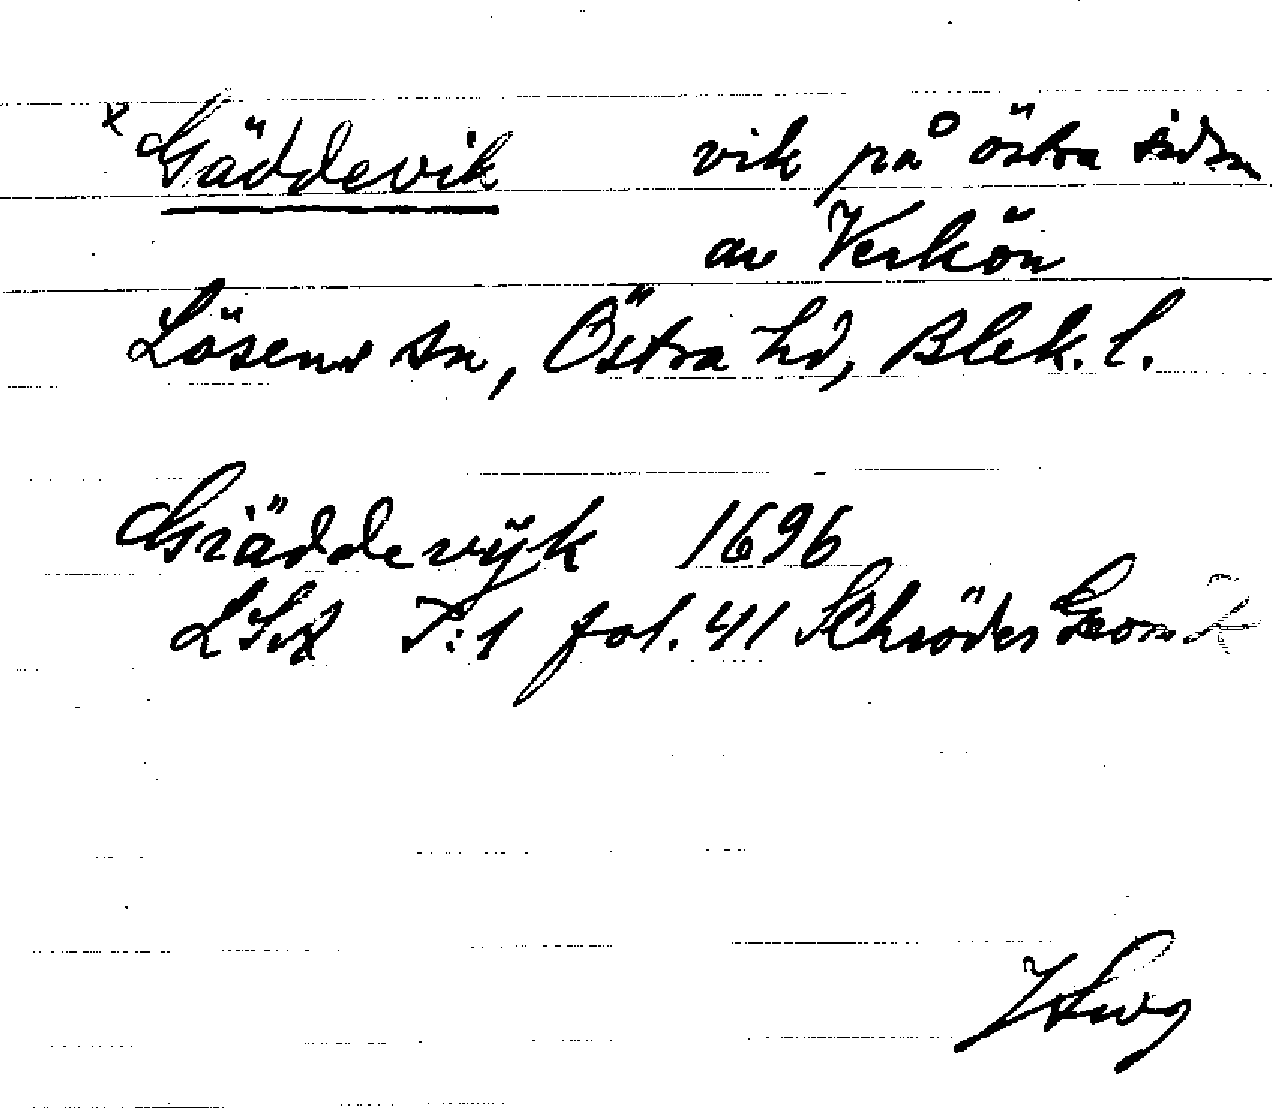 x Gäddevik vik på östra sidan
av Verkön
Lösens sn, Östra hd, Blek. l.
Giäddevÿk 1696
LSA T:1 fol. 41 Schröders Geom